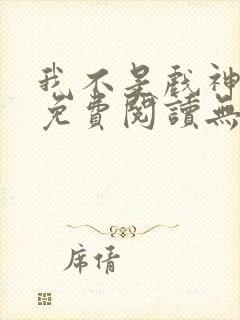 我不是戲神
免費閱讀無
席倩